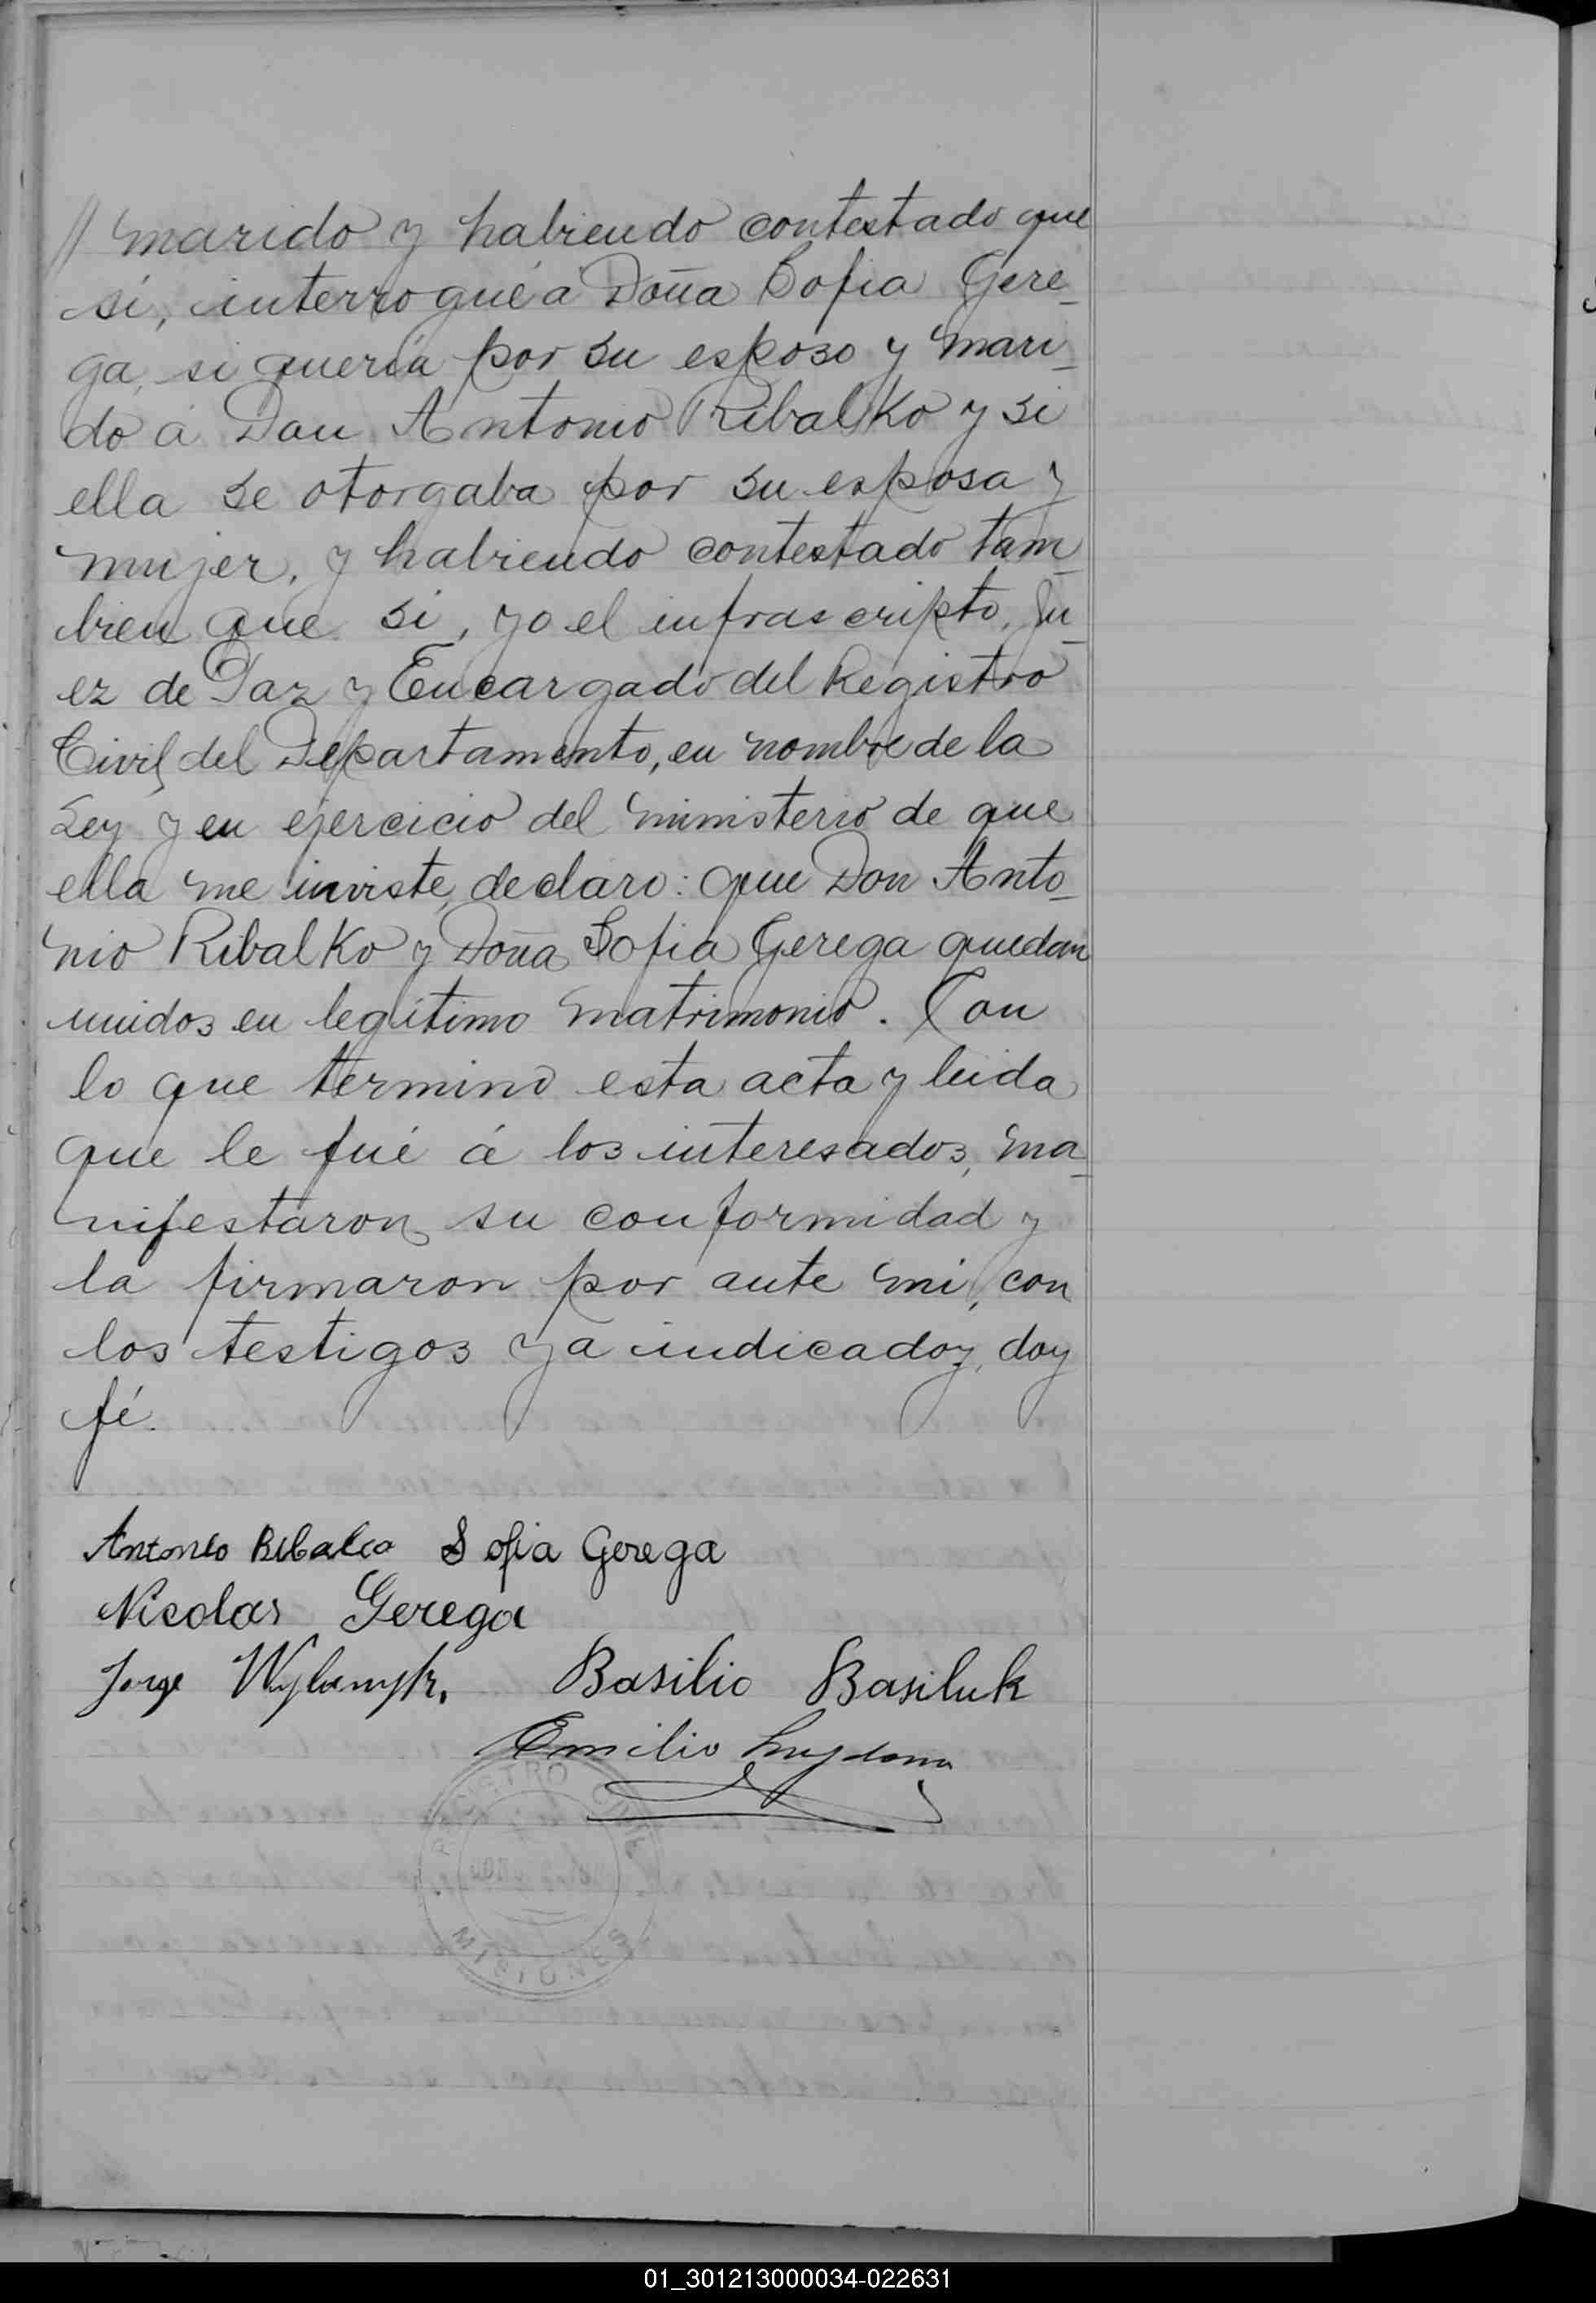 // marido y habiendo contestado que
si, interrogué á Doña Sofia Gere-
ga, si quería por su esposo y mari-
do á Don Antonio Ribalko y si
ella se otorgaba por su esposa y
mujer, y habiendo contestado tam-
bien que si, yo el infrascripto, Ju-
ez de Paz y Encargado del Registro
Civil del Departamento, en nombre de la
Ley y en ejercicio del ministerio de que
ella me inviste, declaro: que Don Anto-
nio Ribalko y Doña Sofia Gerega quedan
unidos en legítimo matrimonio. Con
lo que terminó esta acta y leida
que le fué á los interesados, ma-
nifestaron su conformidad y
la firmaron por ante mi, con
los testigos ya indicados, doy
fé.
Antonio Ribalco Sofia Gerega
Nicolas Gerega
Jorge Basilio Basiluk
Emilio
REGISTRO CIVIL
MISIONES
01_301213000034-022631